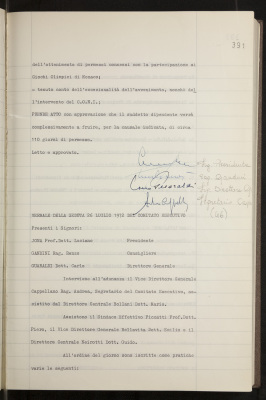 291
dell'ottenimento di permessi connessi con la partecipazione ai
Giochi Olimpici di Monaco;
- tenuto conto dell'eccezionalità dell'avvenimento, nonchè del-
l'intervento del C.O.N.I.;
PRENDE ATTO con approvazione che il suddetto dipendente verrà
complessivamente a fruire, per la causale indicata, di circa
110 giorni di permesso.
Letto e approvato.
VERBALE DELLA SEDUTA 26 LUGLIO 1972 DEL COMITATO ESECUTIVO
Presenti i Signori:
JONA Prof.Dott. Luciano Presidente
GANDINI Rag. Marco Consigliere
GUARALDI Dott. Carlo Direttore Generale
Interviene all'adunanza il Vice Direttore Generale
Cappellano Rag. Andrea, Segretario del Comitato Esecutivo, as-
sistito dal Direttore Centrale Bollani Dott. Mario.
Assistono il Sindaco Effettivo Rinaldi Prof.Dott.
Piero, il Vice Direttore Generale Dott. Emilio e il
Direttore Centrale Dott. Guido.
All'ordine del giorno sono iscritte come pratiche
varie le seguenti: